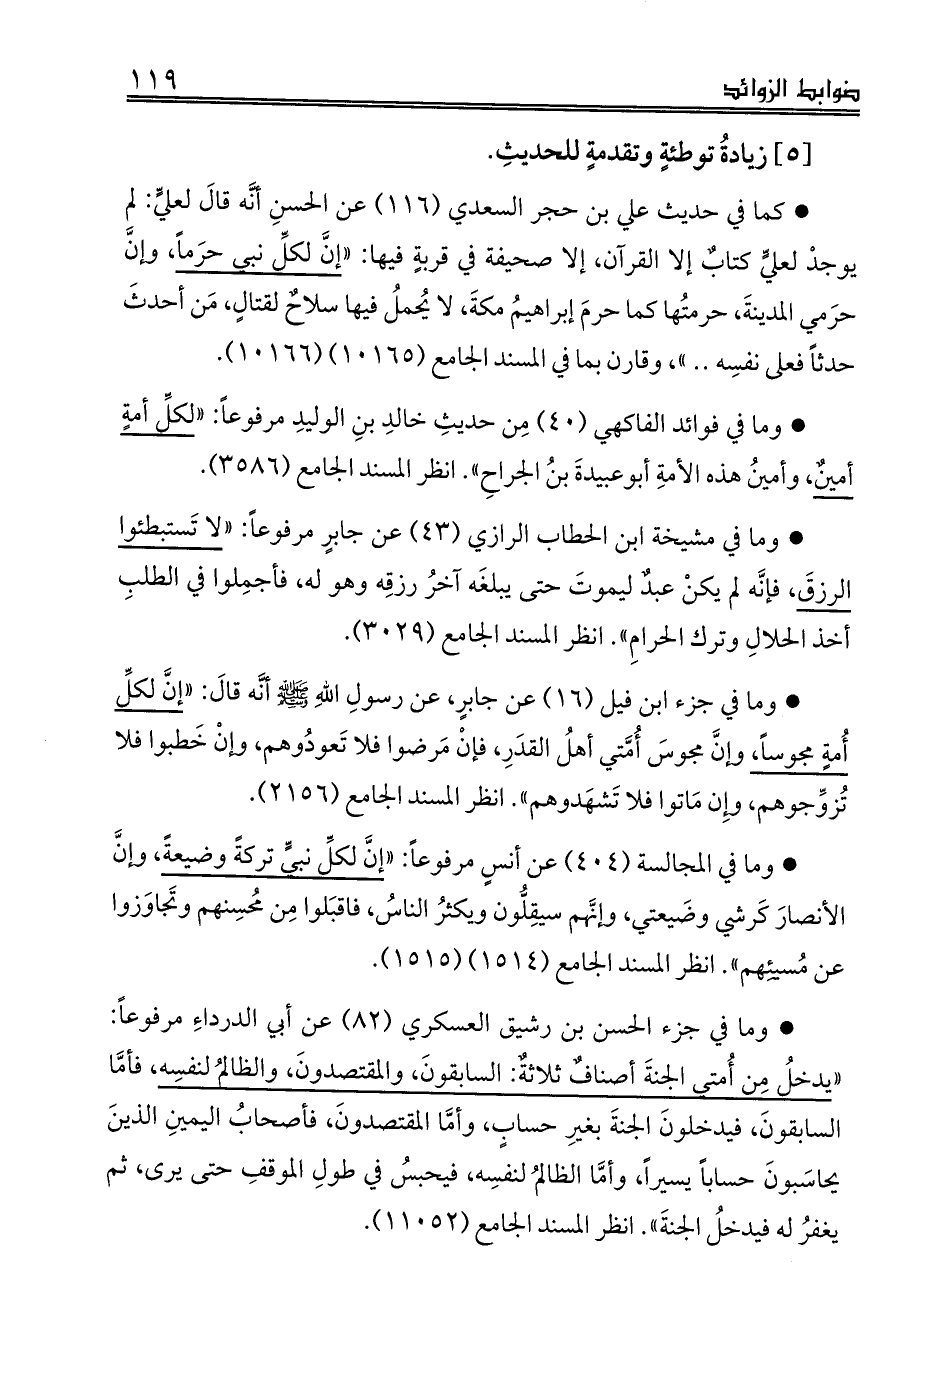 ضوابط الزوائد ١١٩
[٥] زيادةُ توطئةٍ وتقدمةٍ للحديثِ.
● كما في حديث علي بن حجر السعدي (١١٦) عن الحسنِ أنَّه قالَ لعليٍّ: لم
يوجدْ لعليٍّ كتابٌ إلا القرآن، إلا صحيفة في قربةٍ فيها: «إنَّ لكلِّ نبي حرَماً، وإنَّ
حرَمي المدينةَ، حرمتُها كما حرمَ إبراهيمُ مكةَ، لا يُحملُ فيها سلاحٌ لقتالٍ، مَن أحدثَ
حدثاً فعلى نفسِه .. »، وقارن بما في المسند الجامع (١٠١٦٥) (١٠١٦٦).
● وما في فوائد الفاكهي (٤٠) مِن حديثِ خالدِ بنِ الوليدِ مرفوعاً: «لكلِّ أمةٍ
أمينٌ، وأمينُ هذه الأمةِ أبوعبيدةَ بنُ الجراحِ». انظر المسند الجامع (٣٥٨٦).
● وما في مشيخة ابن الحطاب الرازي (٤٣) عن جابرٍ مرفوعاً: «لا تَستبطئوا
الرزقَ، فإنَّه لم يكنْ عبدٌ ليموتَ حتى يبلغَه آخرُ رزقِه وهو له، فأجمِلوا في الطلبِ
أخذ الحلالِ وترك الحرامِ». انظر المسند الجامع (٣٠٢٩).
● وما في جزء ابن فيل (١٦) عن جابرٍ، عن رسولِ اللهِ ﷺ أنَّه قالَ: «إنَّ لكلِّ
أُمةٍ مجوساً، وإنَّ مجوسَ أُمَّتي أهلُ القدَرِ، فإنْ مَرضوا فلا تَعودُوهم، وإنْ خَطبوا فلا
تُزوِّجوهم، وإن مَاتوا فلا تَشهَدوهم». انظر المسند الجامع (٢١٥٦).
● وما في المجالسة (٤٠٤) عن أنسٍ مرفوعاً: «إنَّ لكلِّ نبيٍّ تركةً وضيعةً، وإنَّ
الأنصارَ كَرشي وضَيعتي، وإنَّهم سيقلُّون ويكثرُ الناسُ، فاقبَلوا مِن مُحسِنهم وتَجاوَزوا
عن مُسيئِهم». انظر المسند الجامع (١٥١٤) (١٥١٥).
● وما في جزء الحسن بن رشيق العسكري (٨٢) عن أبي الدرداءِ مرفوعاً:
«يدخلُ مِن أُمتي الجنةَ أصنافٌ ثلاثةٌ: السابقونَ، والمقتصدونَ، والظالمُ لنفسِه، فأمَّا
السابقونَ، فيدخلونَ الجنةَ بغيرِ حسابٍ، وأمَّا المقتصدونَ، فأصحابُ اليمينِ الذينَ
يحاسَبونَ حساباً يسيراً، وأمَّا الظالمُ لنفسِه، فيحبسُ في طولِ الموقفِ حتى يرى، ثم
يغفرُ له فيدخلُ الجنةَ». انظر المسند الجامع (١١٠٥٢).